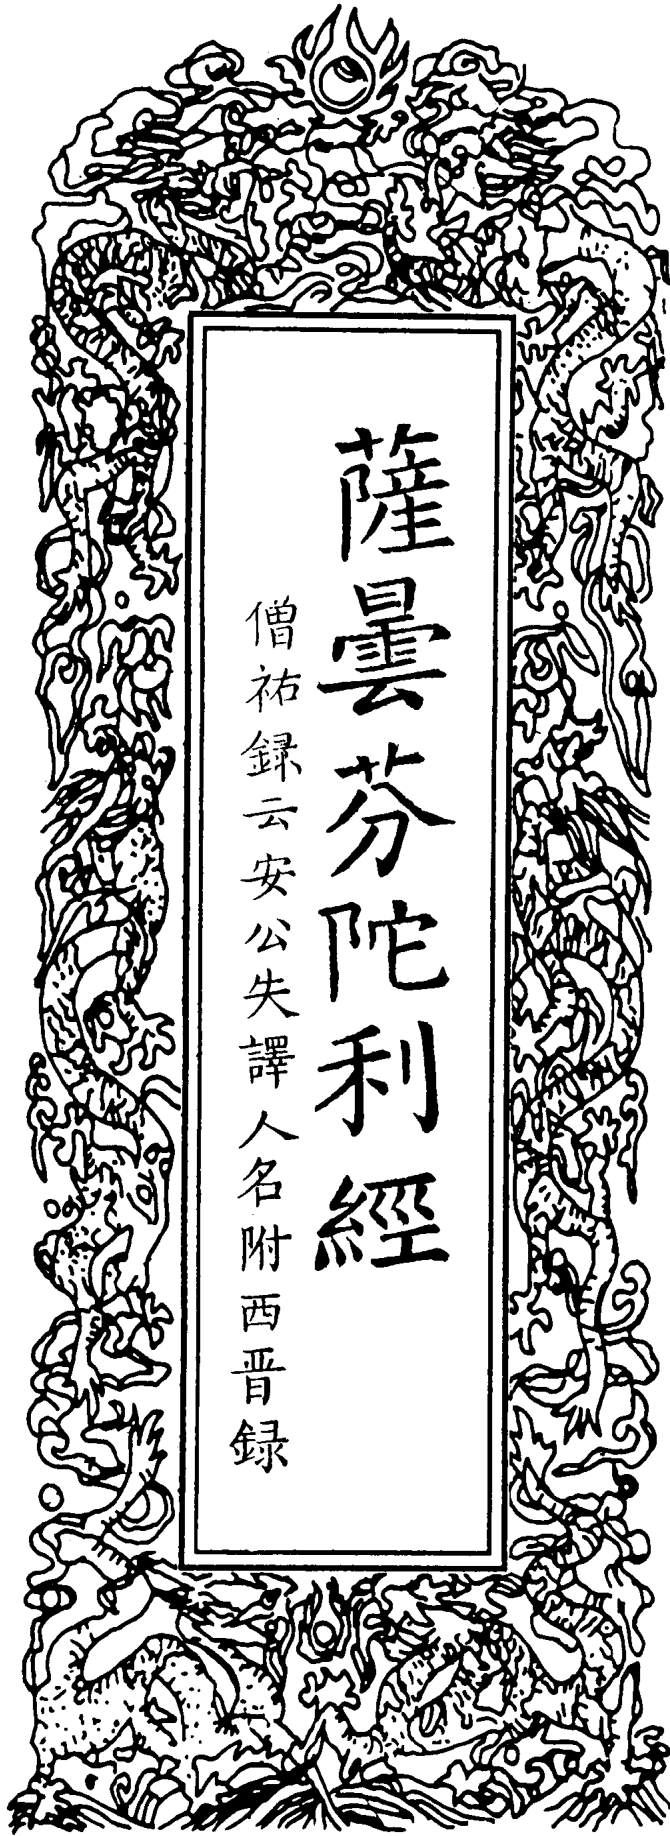 薩曇芬陀利經
僧祐録云安公失譯人名附西晋録